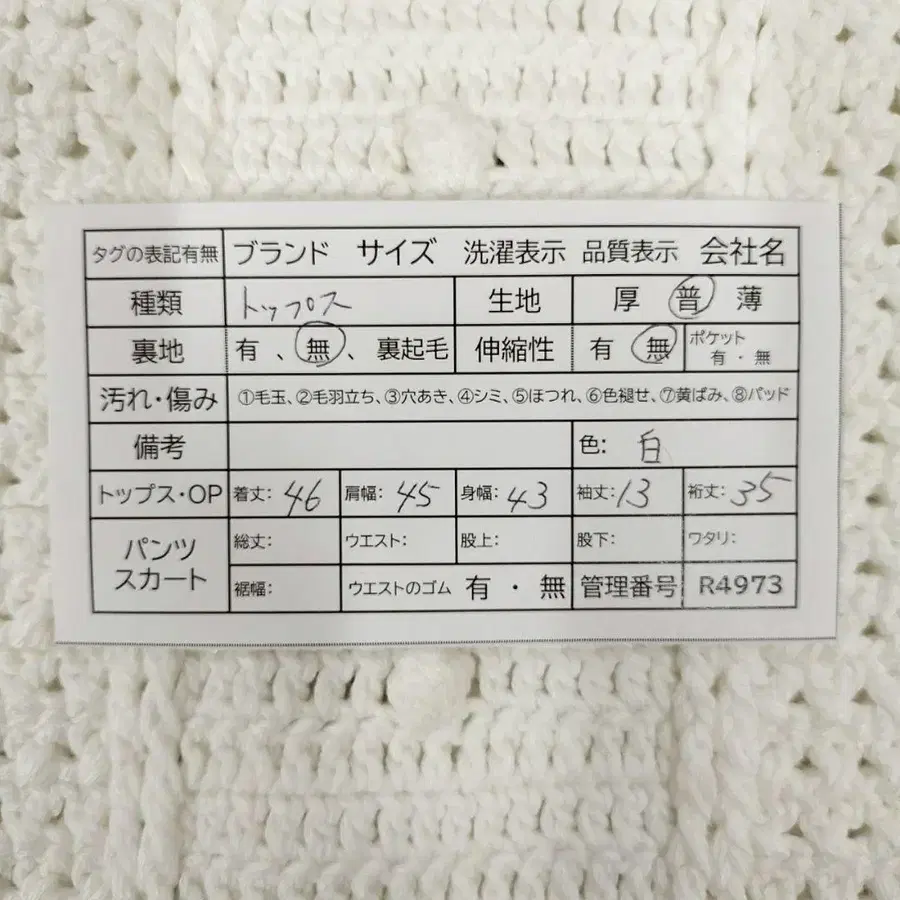 タグの表記有無 ブランド サイズ 洗濯表示 品質表示 会社名
種類 トップス 生地 厚 普 薄
裏地 有、無、裏起毛 伸縮性 有 無 ポケット 有・無
汚れ・傷み ①毛玉、②毛羽立ち、③穴あき、④シミ、⑤ほつれ、⑥色褪せ、⑦黄ばみ、⑧パッド
備考 色: 白
トップス・OP 着丈: 46 肩幅: 45 身幅: 43 袖丈: 13 裄丈: 35
パンツ スカート 総丈: ウエスト: 股上: 股下: ワタリ:
裾幅: ウエストのゴム 有・無 管理番号 R4973